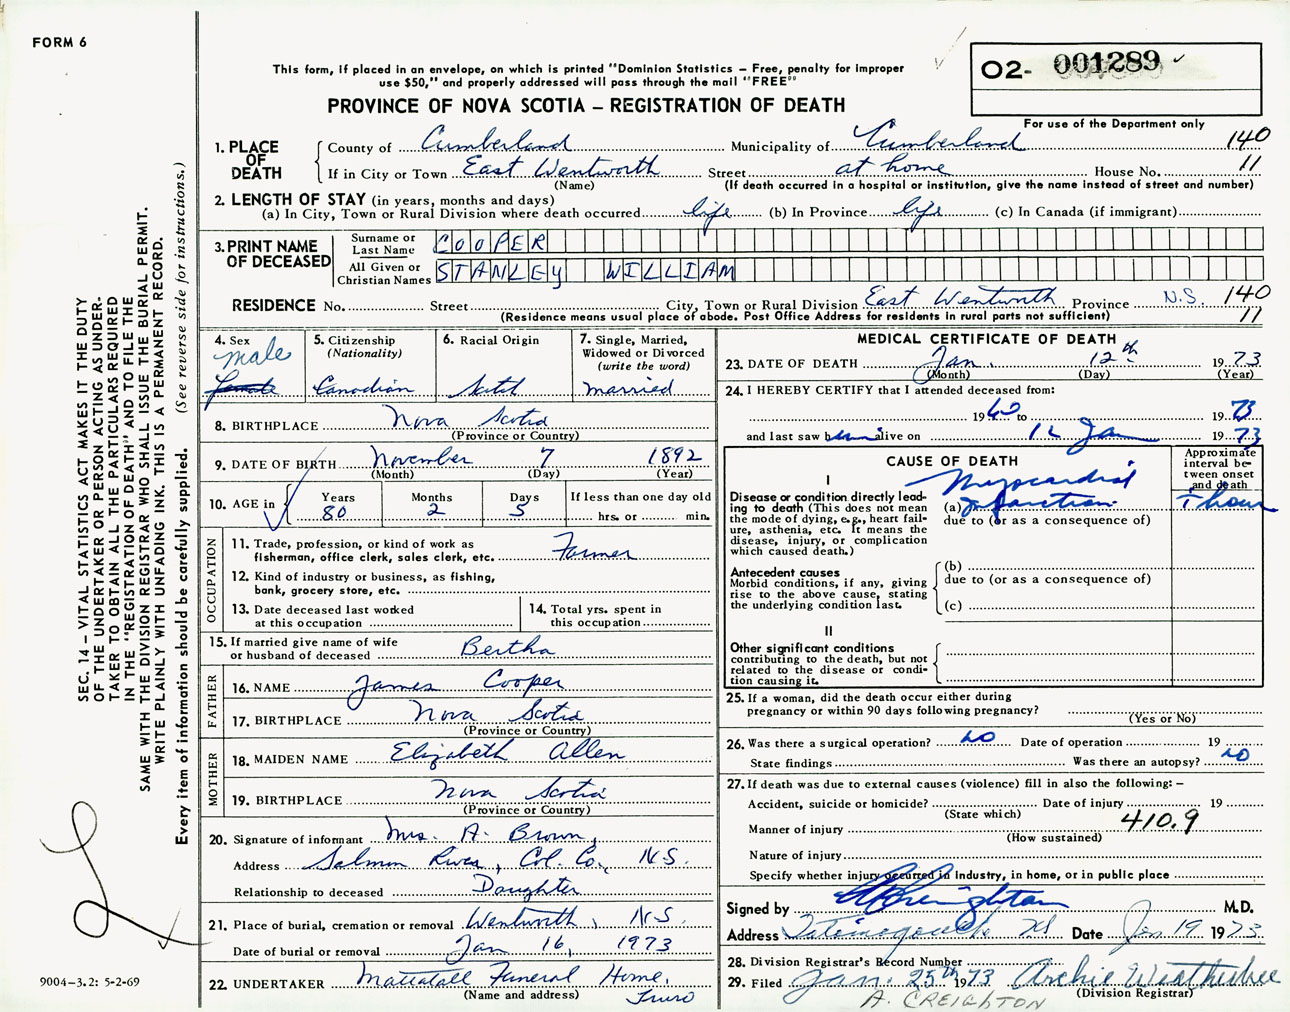 FORM 6
This form, if placed in an envelope, on which is printed "Dominion Statistics – Free, penalty for improper
use $50," and properly addressed will pass through the mail "FREE"
PROVINCE OF NOVA SCOTIA – REGISTRATION OF DEATH
O2- 001289
For use of the Department only
1. PLACE OF DEATH
County of Cumberland Municipality of Cumberland 140
If in City or Town East Wentworth Street at home House No. 11
(Name) (If death occurred in a hospital or institution, give the name instead of street and number)
2. LENGTH OF STAY (in years, months and days)
(a) In City, Town or Rural Division where death occurred life (b) In Province life (c) In Canada (if immigrant)
3. PRINT NAME OF DECEASED
Surname or Last Name COOPER
All Given or Christian Names STANLEY WILLIAM
RESIDENCE No. Street City, Town or Rural Division East Wentworth Province N.S. 140
(Residence means usual place of abode. Post Office Address for residents in rural parts not sufficient) 11
4. Sex
male
female
5. Citizenship
(Nationality)
Canadian
6. Racial Origin
Scotch
7. Single, Married,
Widowed or Divorced
(write the word)
married
8. BIRTHPLACE Nova Scotia
(Province or Country)
9. DATE OF BIRTH November 7 1892
(Month) (Day) (Year)
10. AGE in
Years Months Days If less than one day old
80 2 5 hrs. or min.
OCCUPATION
11. Trade, profession, or kind of work as
fisherman, office clerk, sales clerk, etc. Farmer
12. Kind of industry or business, as fishing,
bank, grocery store, etc.
13. Date deceased last worked
at this occupation
14. Total yrs. spent in
this occupation
15. If married give name of wife
or husband of deceased Bertha
FATHER
16. NAME James Cooper
17. BIRTHPLACE Nova Scotia
(Province or Country)
MOTHER
18. MAIDEN NAME Elizabeth Allen
19. BIRTHPLACE Nova Scotia
(Province or Country)
20. Signature of informant Mrs. A. Brown,
Address Salmon River, Col. Co., N.S.
Relationship to deceased Daughter
21. Place of burial, cremation or removal Wentworth, N.S.
Date of burial or removal Jan 16, 1973
22. UNDERTAKER Mattatall Funeral Home.
(Name and address) Truro
MEDICAL CERTIFICATE OF DEATH
23. DATE OF DEATH Jan. 12th 1973
(Month) (Day) (Year)
24. I HEREBY CERTIFY that I attended deceased from:
1960 to 1973
and last saw him alive on 12 Jan 1973
CAUSE OF DEATH
Approximate
interval be-
tween onset
and death
I
Disease or condition directly lead-
ing to death (This does not mean
the mode of dying, e.g., heart fail-
ure, asthenia, etc. It means the
disease, injury, or complication
which caused death.)
Myocardial
(a) Infarction 1 hour
due to (or as a consequence of)
Antecedent causes
Morbid conditions, if any, giving
rise to the above cause, stating
the underlying condition last.
(b)
due to (or as a consequence of)
(c)
II
Other significant conditions
contributing to the death, but not
related to the disease or condi-
tion causing it.
25. If a woman, did the death occur either during
pregnancy or within 90 days following pregnancy?
(Yes or No)
26. Was there a surgical operation? no Date of operation 19
State findings Was there an autopsy? no
27. If death was due to external causes (violence) fill in also the following: –
Accident, suicide or homicide? Date of injury 19
(State which)
410.9
Manner of injury
(How sustained)
Nature of injury
Specify whether injury occurred in Industry, in home, or in public place
Signed by Creighton M.D.
Address Tatamagouche NS Date Jan 19 1973
28. Division Registrar's Record Number
29. Filed Jan. 25th 1973 Archie Weatherbee
(Division Registrar)
A. CREIGHTON
SEC. 14 – VITAL STATISTICS ACT MAKES IT THE DUTY
OF THE UNDERTAKER OR PERSON ACTING AS UNDER-
TAKER TO OBTAIN ALL THE PARTICULARS REQUIRED
IN THE "REGISTRATION OF DEATH" AND TO FILE THE
SAME WITH THE DIVISION REGISTRAR WHO SHALL ISSUE THE BURIAL PERMIT.
WRITE PLAINLY WITH UNFADING INK. THIS IS A PERMANENT RECORD.
Every item of information should be carefully supplied. (See reverse side for instructions.)
9004-3.2: 5-2-69